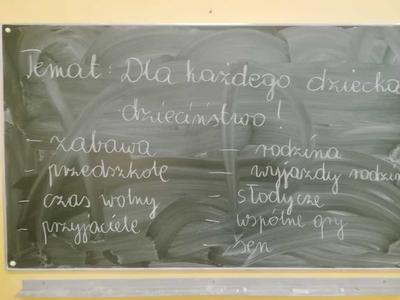 Temat: Dla każdego dziecka
dzieciństwo!
- zabawa
- przedszkole
- czas wolny
- przyjaciele
- rodzina
- wyjazdy rodzin
- słodycze
- wspólne gry
- sen